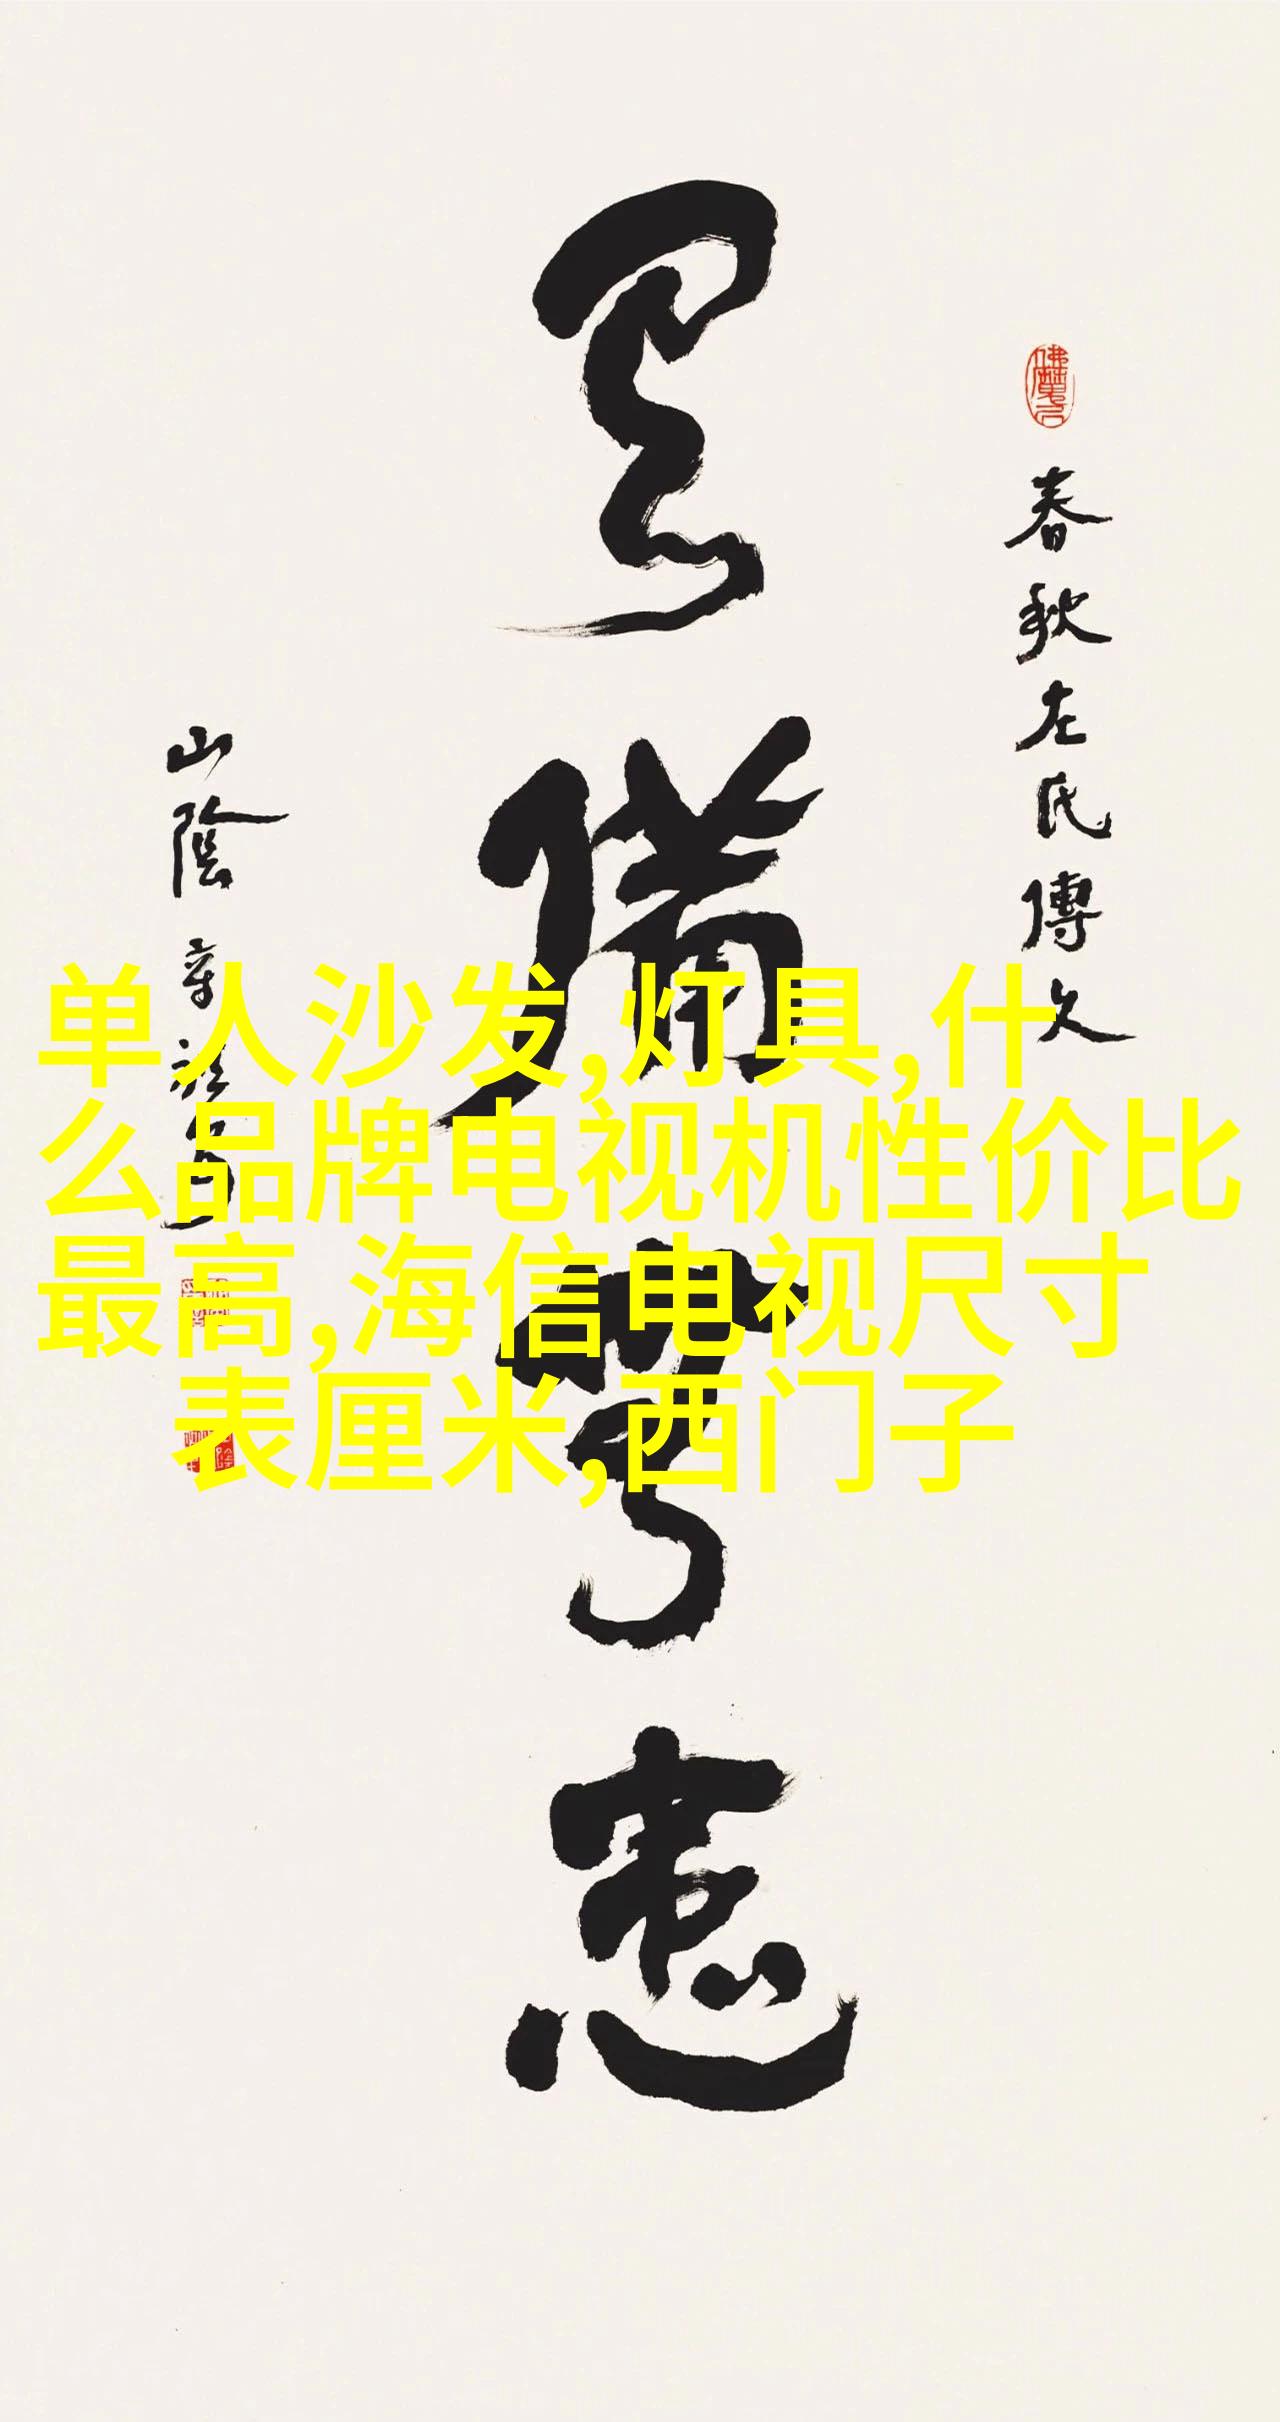 春秋左氏傳
有備無患
山陰
单人沙发,灯具,什
么品牌电视机性价比
最高,海信电视尺寸
表厘米,西门子